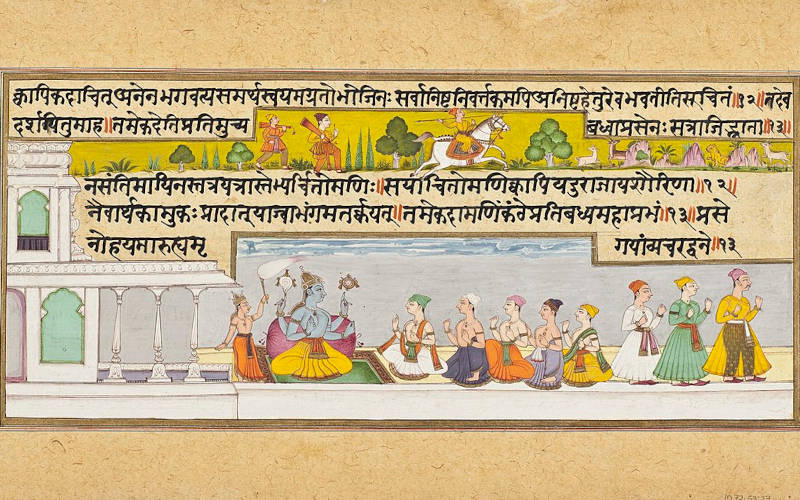 क्वापिकदाचित्अनेनभगवत्यसमर्प्यस्वयमग्रतोभोजिनः सर्वानिष्टनिवर्त्तकमपिअनिष्टहेतुरेवभवतीतिसूचितं॥१२॥तदेव
दर्शयितुमाह॥तमेकदेतिप्रतिमुच्य बध्वाप्रसेनः सत्राजिद्भ्राता॥१३॥
नसंतिमायिनस्तत्रयत्रास्तेभ्यर्चितोमणिः॥सयाचितोमणिंक्वापियदुराजायशौरिणा॥१२॥
नैवार्थकामुकः प्रादात्याञ्चाभंगमतर्कयन्॥तमेकदामणिंकंठेप्रतिबध्यमहाप्रभं॥१३॥प्रसे
नोहयमारुह्यमृ गयांव्यचरद्वने॥१३